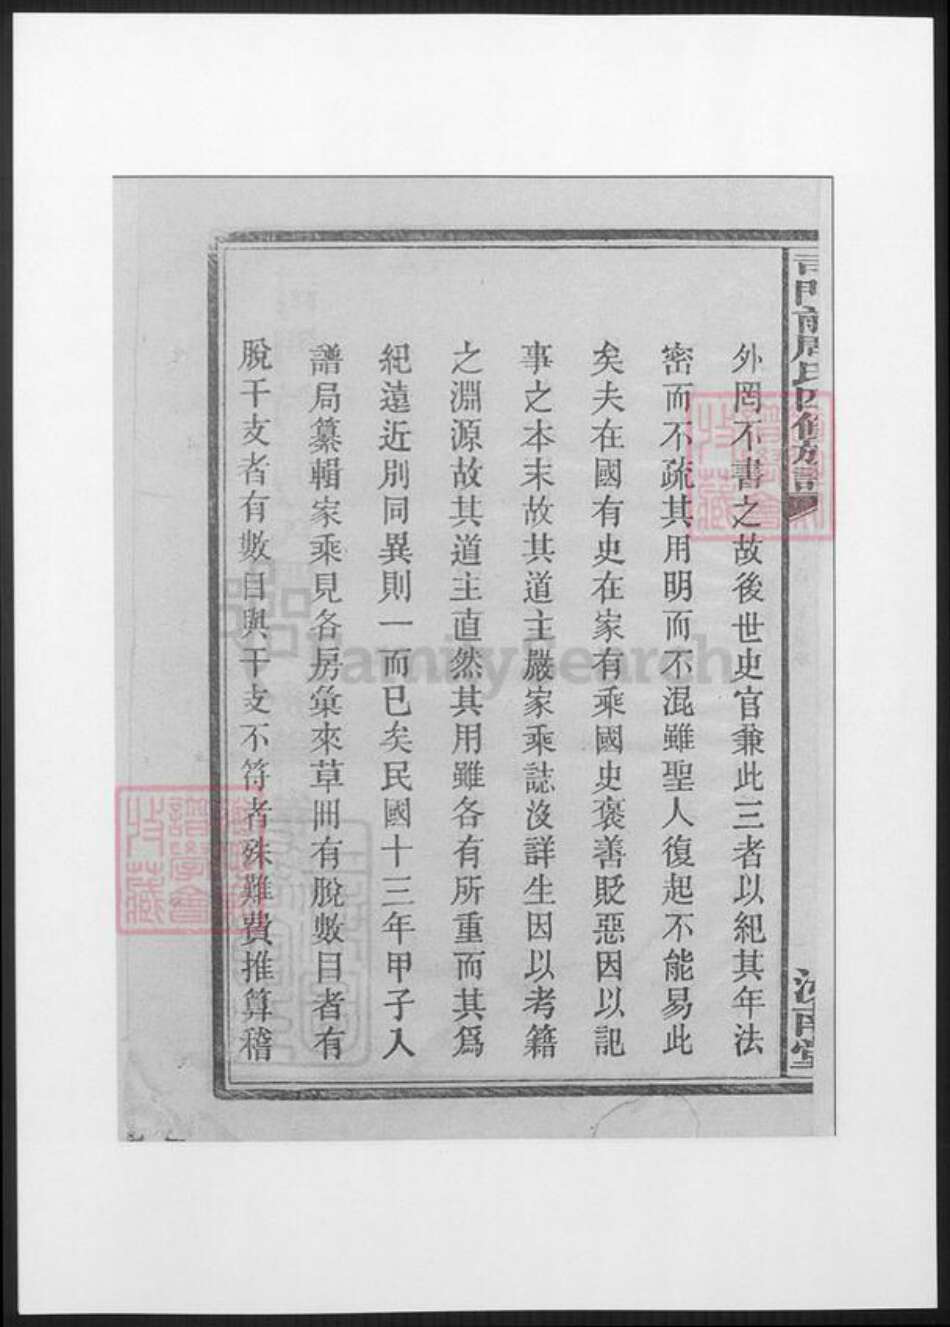 司門前周氏四修族譜
汝南堂
外罔不書之故後世史官兼此三者以紀其年法
密而不疏其用明而不混雖聖人復起不能易此
矣夫在國有史在家有乘國史褒善貶惡因以記
事之本末故其道主嚴家乘誌沒詳生因以考籍
之淵源故其道主直然其用雖各有所重而其爲
紀遠近別同異則一而已矣民國十三年甲子入
譜局纂輯家乘見各房彙來草冊有脫數目者有
脫干支者有數目與干支不符者殊難費推算稽
FamilySearch